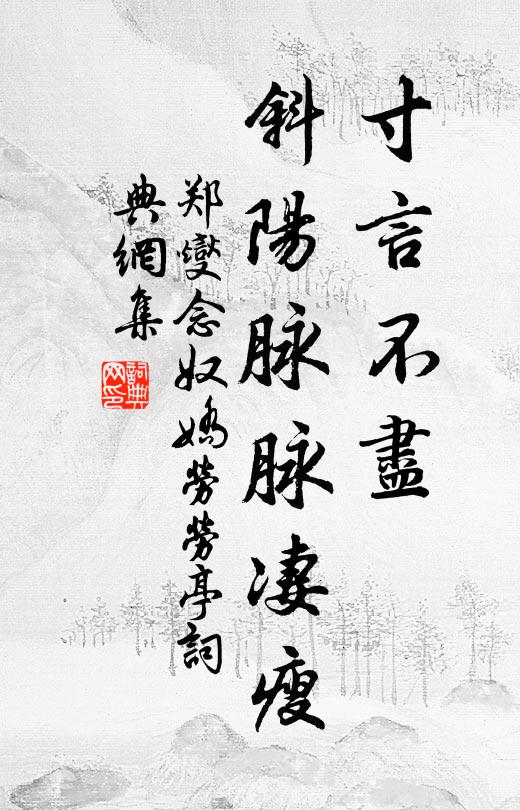 寸言不盡
斜陽脉脉淒瘦
郑燮念奴嬌勞勞亭詞
典網集
詞典
网印